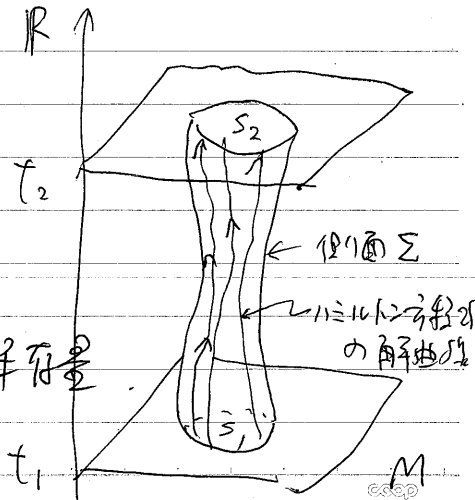 ℝ
S₂
t₂
側面 Σ
ハミルトン方程式
の解曲線
保存量
S₁
t₁
M
coop